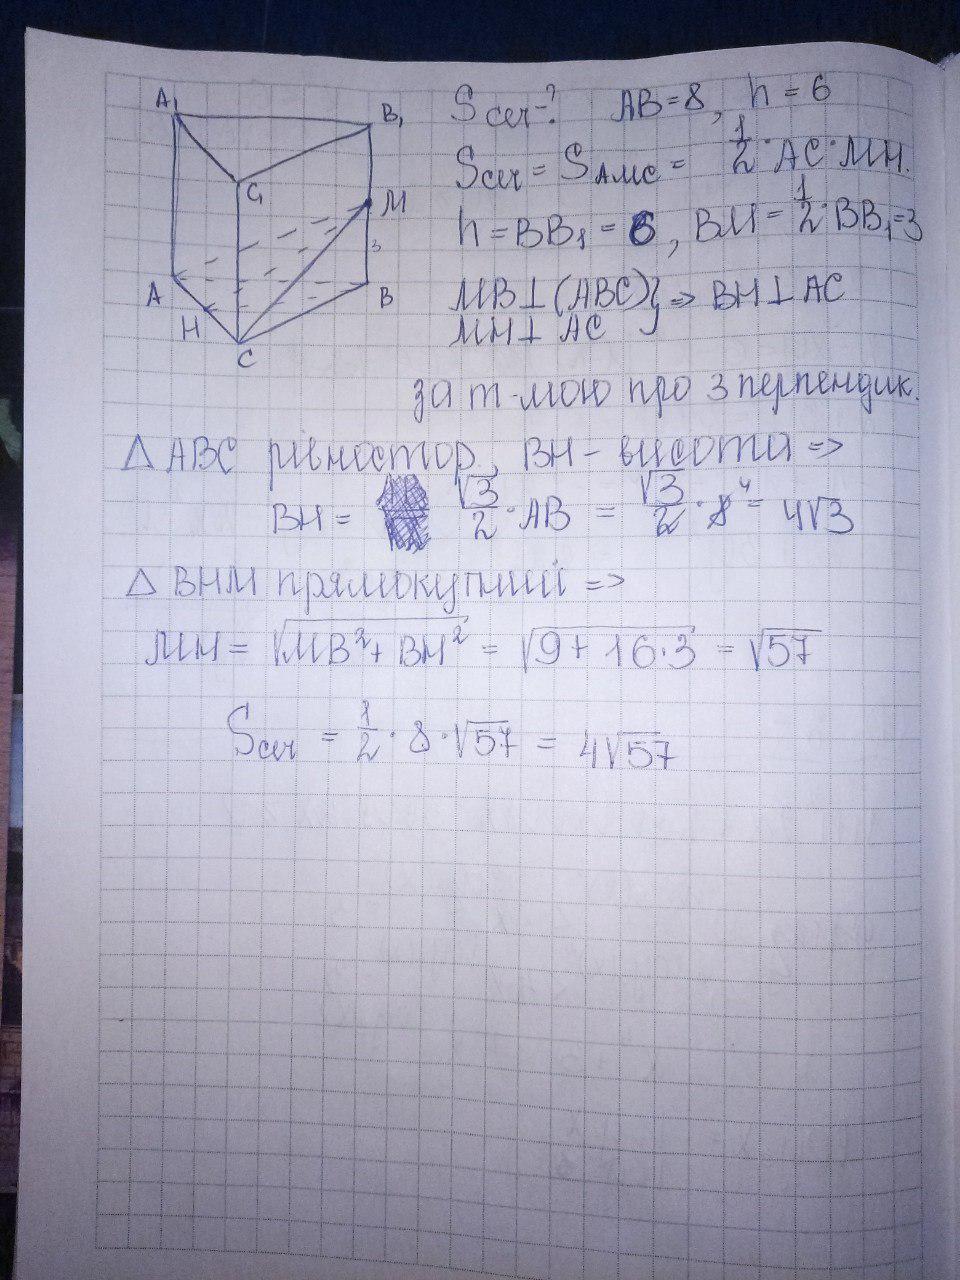 A₁
B₁
C₁
M
3
A
B
H
C
Sсеч-? AB=8, h=6
Sсеч = S AMC = 1/2 · AC · MH.
h = BB₁ = 6, BM = 1/2 · BB₁=3
MB⊥(ABC)} => BH⊥AC
MH⊥AC
за т-мою про 3 перпендик.
△ABC рівностор, BH - висота =>
BH = √3/2 · AB = √3/2 · 8 4 = 4√3
△BHM прямокутний =>
MH = √MB²+BH² = √9+16·3 = √57
Sсеч = 1/2 · 8 · √57 = 4√57